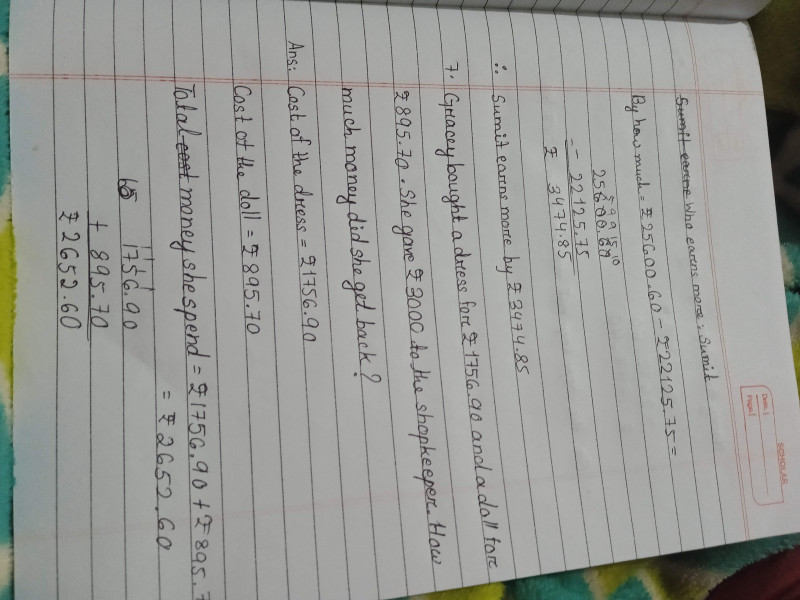 SCHOLAR
Date:
Page:
Sumit earns Who earns more: Sumit
By how much = ₹25600.60 - ₹22125.75 =
5 9 9 15 10
25600.60
- 22125.75
₹ 3474.85
∴ Sumit earns more by ₹3474.85
7. Gracey bought a dress for ₹1756.90 and a doll for
₹895.70. She gave ₹3000 to the shopkeeper. How
much money did she get back?
Ans: Cost of the dress = ₹1756.90
Cost of the doll = ₹895.70
Total cost money she spend = ₹1756.90 + ₹895.7
= ₹2652.60
1 1 1
1756.90
+ 895.70
₹2652.60